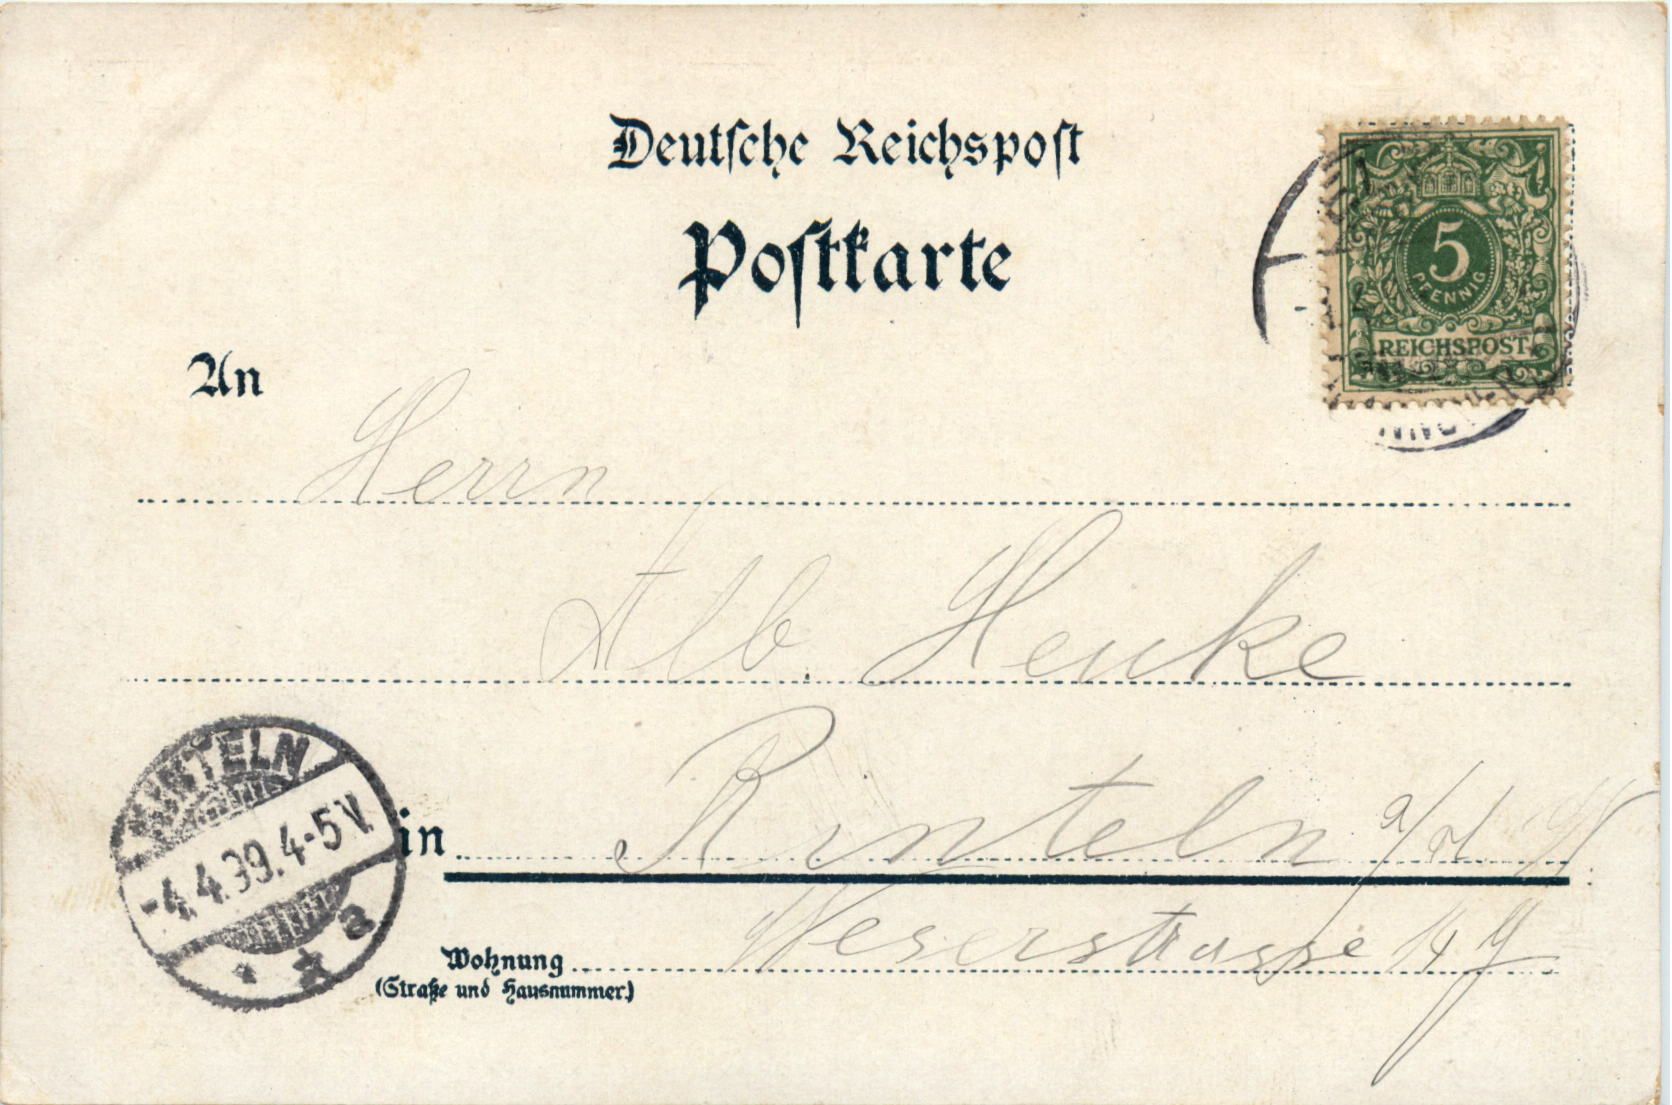 Deutsche Reichspost
Postkarte
5
PFENNIG
REICHSPOST
An
Herrn
Alb. Henke
RINTELN
-4.4.99. 4-5 V.
* * a
in Rinteln a/d W
Wohnung Weserstrasse
(Straße und Hausnummer.)